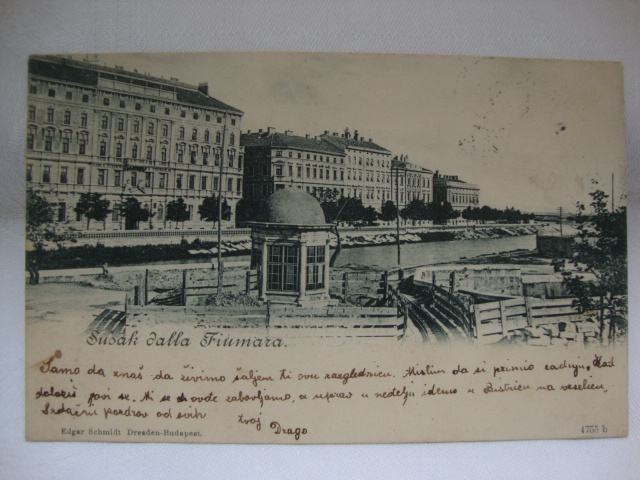 Sušak dalla Fiumara.
Samo da znaš da živimo šaljem ti ovu razglednicu. Mislim da si primio zadnju. Kad
dolaziš javi se. Mi se ovde zabavljamo, a u nedelju idemo u Bistricu na veselicu.
Srdačni pozdrav od svih tvoj
Drago.
Edgar Schmidt Dresden-Budapest.
4755 b